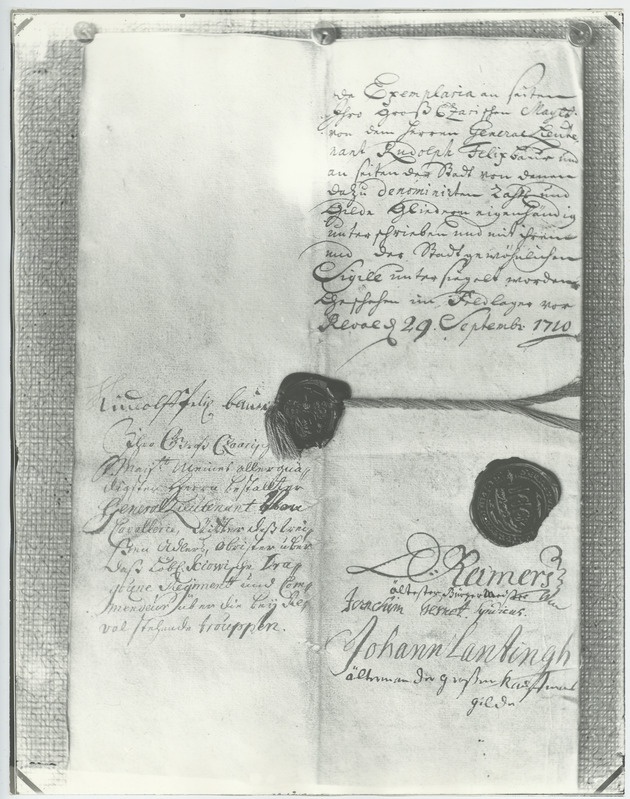 de Exemplaria an seiten
Ihro Groß Czarischen Maytt:
von dem Herren General Lieute-
nant Rudolph Felix Bauer und
an seiten der Stadt von denen
dazu denominirten Raht und
Gilde Gliedern eigenhändig
unterschrieben und mit ihrem
und der Stadt gewöhnlichen
Sigill untersiegelt worden
Geschehen im Feldlager vor
Reval d 29. Septembr 1710
Rudolff Felix bauer
Ihro Groß Czarisch
Mayt: Meines allergnä-
digsten Herrn bestallter
General Lieutenant von
Cavallerie, Ritter deß weis-
sen Adlers, Obrister über
daß Löbl. Kiowische Dra-
goune Regiment und Com-
mendeur über die bey Re-
val stehende trouppen.
D. Reimers
ältester Bürger Meister
Joachim Gernet Syndicus.
Johann Lanting
älterman der großen Kauffmans
gilde